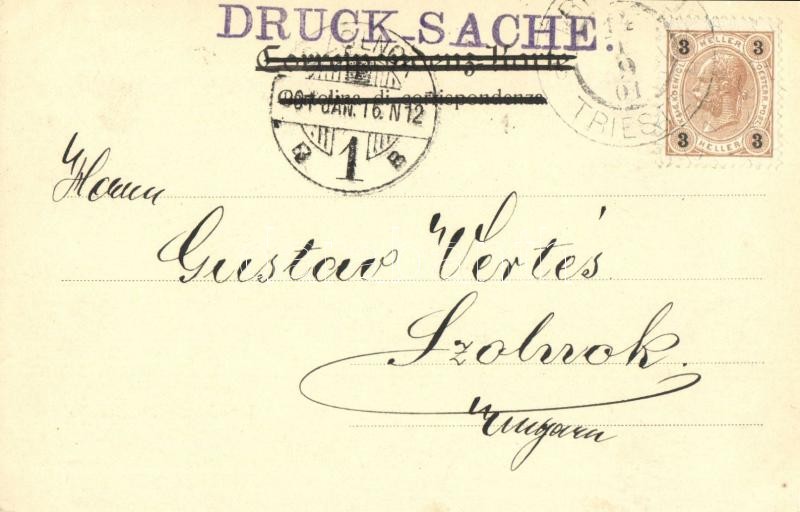 DRUCK-SACHE.
Correspondenz-Karte
Cartolina di corrispondenza
901 JAN. 16. N 12
1
14
1
9
01
TRIEST
3 HELLER 3
3 HELLER 3
Herrn
Gustav Vértés
Szolnok.
Ungarn